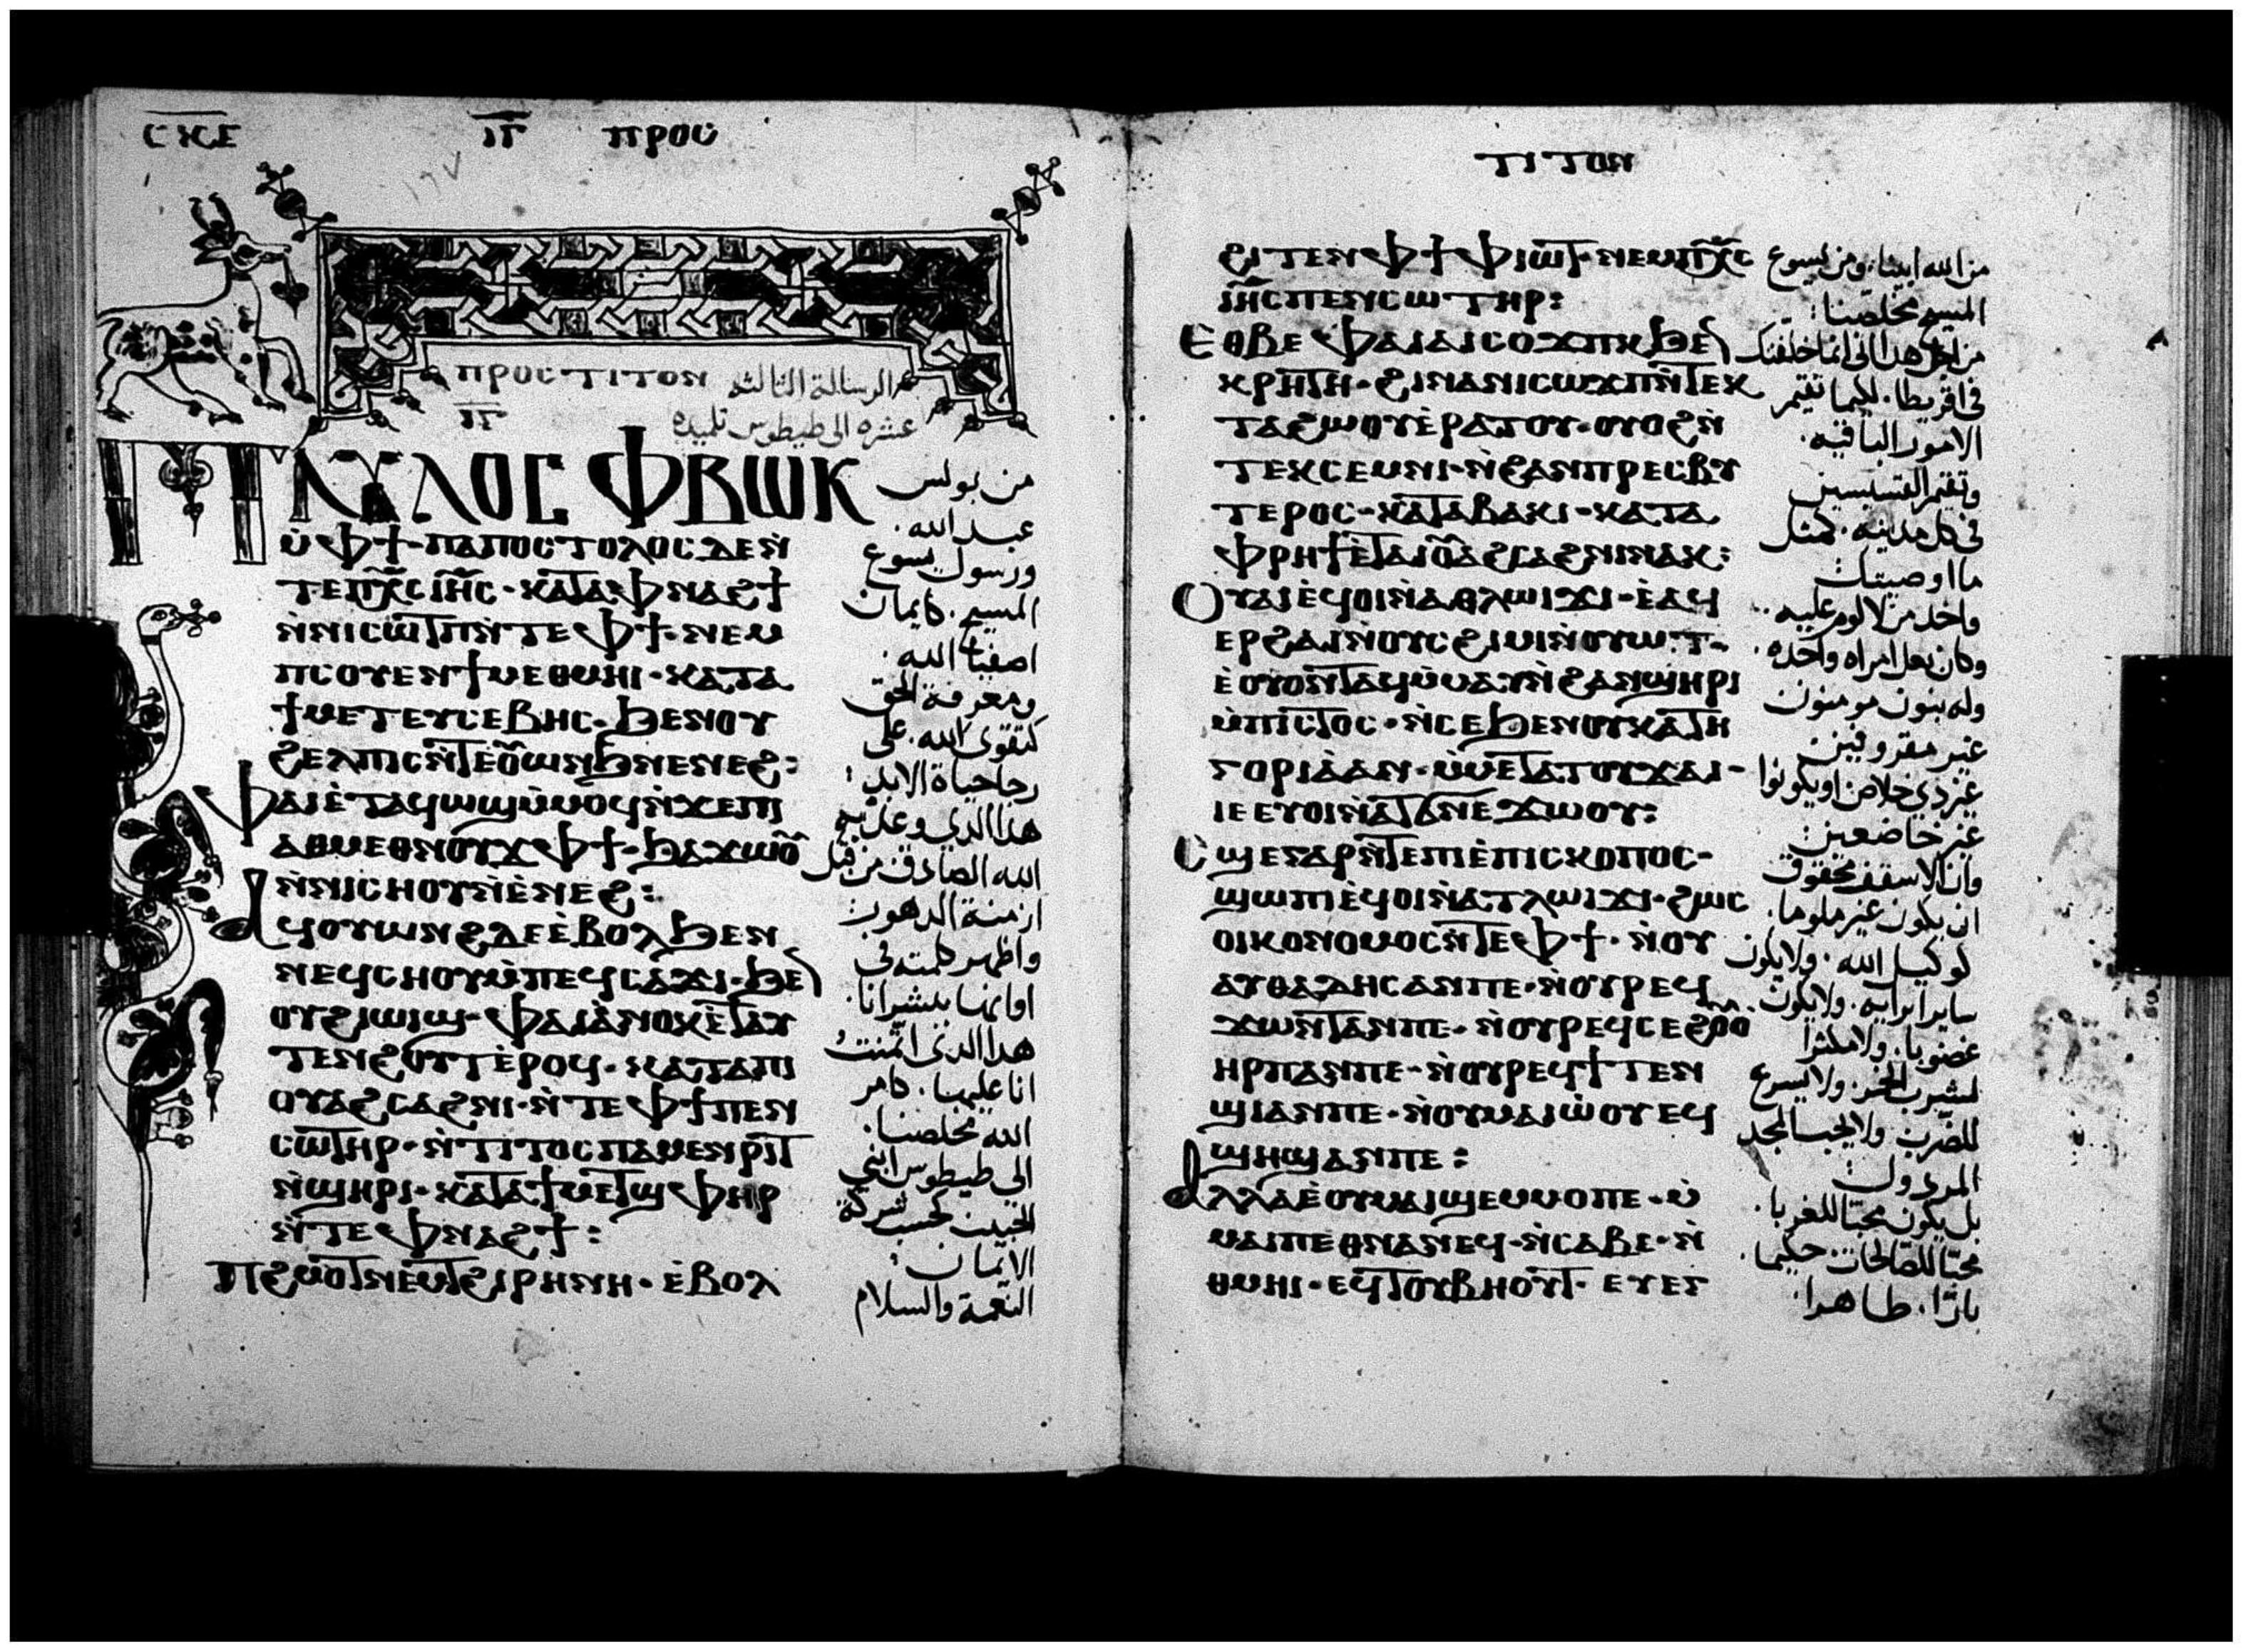 ⲥⲕⲉ ⲓⲅ ⲡⲣⲟⲥ
ⲡⲣⲟⲥ ⲧⲓⲧⲟⲛ الرسالة الثالثه
ⲓⲅ عشره الى طيطوس تلميذه
ⲡⲁⲩⲗⲟⲥ ⲫⲃⲱⲕ
ⲙ̀ⲫϯ· ⲡⲁⲡⲟⲥⲧⲟⲗⲟⲥ ⲇⲉ ⲛ̀
ⲧⲉ ⲡⲭ̅ⲥ ⲓⲏ̅ⲥ· ⲕⲁⲧⲁ ⲫⲛⲁϩϯ
ⲛ̀ⲛⲓⲥⲱⲧⲡ ⲛ̀ⲧⲉ ⲫϯ· ⲛⲉⲙ
ⲡⲥⲟⲩⲉⲛ ϯⲙⲉⲑⲙⲏⲓ· ⲕⲁⲧⲁ
ϯⲙⲉⲧⲉⲩⲥⲉⲃⲏⲥ· ϧⲉⲛ ⲟⲩ
ϩⲉⲗⲡⲓⲥ ⲛ̀ⲧⲉ ⲟⲩⲱⲛϧ ⲛⲉⲛⲉϩ:
ⲫⲁⲓ ⲉ̀ⲧⲁϥⲱϣ ⲙ̀ⲙⲟϥ ⲛ̀ϫⲉ ⲡⲓ
ⲁⲑⲙⲉⲑⲛⲟⲩϫ ⲫϯ· ϧⲁϫⲱⲟⲩ
ⲛ̀ⲛⲓⲥⲏⲟⲩ ⲛ̀ⲉ̀ⲛⲉϩ:
ⲁϥⲟⲩⲱⲛϩ ⲇⲉ ⲉ̀ⲃⲟⲗ ϧⲉⲛ
ⲛⲉϥⲥⲏⲟⲩ ⲙ̀ⲡⲉϥⲥⲁϫⲓ· ϧⲉⲛ
ⲟⲩϩⲓⲱⲓϣ· ⲫⲁⲓ ⲁ̀ⲛⲟⲕ ⲉ̀ⲧⲁⲩ
ⲧⲉⲛϩⲟⲩⲧ ⲉ̀ⲣⲟϥ· ⲕⲁⲧⲁ ⲡⲓ
ⲟⲩⲁϩⲥⲁϩⲛⲓ· ⲛ̀ⲧⲉ ⲫϯ ⲡⲉⲛ
ⲥⲱⲧⲏⲣ· ⲛ̀ⲧⲓⲧⲟⲥ ⲡⲁⲙⲉⲛⲣⲓⲧ
ⲛ̀ϣⲏⲣⲓ· ⲕⲁⲧⲁ ϯⲙⲉⲧϣⲫⲏⲣ
ⲛ̀ⲧⲉ ⲫⲛⲁϩϯ:
ⲡϩⲙⲟⲧ ⲛⲉⲙ ⲧϩⲓⲣⲏⲛⲏ· ⲉ̀ⲃⲟⲗ
من بولس
عبد الله·
ورسول يسوع
المسيح· كايمان
اصفيا الله·
ومعرفة الحق
كتقوى الله· على
رجا حياة الابد:
هذا الذي وعد به
الله الصادق من قبل
ازمنة الدهور:
واظهر كلمته فى
اوانها بلبشر انا·
هذا الذى اتمنت
انا عليها· كامر
الله مخلصنا·
الى طيطوس ابنى
الحبيب كحسب شركة
الايمان:
النعمة والسلام
ⲧⲓⲧⲟⲛ
ϩⲓⲧⲉⲛ ⲫϯ ⲫⲓⲱⲧ· ⲛⲉⲙ ⲡⲭ̅ⲥ
ⲓⲏ̅ⲥ ⲡⲉⲛⲥⲱⲧⲏⲣ:
ⲉⲑⲃⲉ ⲫⲁⲓ ⲁⲓⲥⲟϫⲡⲕ ϧⲉⲛ
ⲕⲣⲏⲧⲏ· ϩⲓⲛⲁ ⲛⲓⲥⲱϫⲡ ⲛ̀ⲧⲉⲕ
ⲧⲁϩⲱⲟⲩ ⲉ̀ⲣⲁⲧⲟⲩ· ⲟⲩⲟϩ ⲛ̀
ⲧⲉⲕⲥⲉⲙⲛⲓ· ⲛ̀ϩⲁⲛⲡⲣⲉⲥⲃⲩ
ⲧⲉⲣⲟⲥ· ⲕⲁⲧⲁ ⲃⲁⲕⲓ· ⲕⲁⲧⲁ
ⲫⲣⲏϯ ⲉ̀ⲧⲁⲓⲟⲩⲁϩⲥⲁϩⲛⲓ ⲛⲁⲕ:
ⲟⲩⲁⲓ ⲉϥⲟⲓ ⲛ̀ⲁⲑⲗⲱⲓϫⲓ· ⲉ̀ⲁϥ
ⲉⲣϩⲁⲓ ⲛ̀ⲟⲩⲥϩⲓⲙⲓ ⲛ̀ⲟⲩⲱⲧ·
ⲉ̀ⲟⲩⲟⲛⲧⲁϥ ⲙ̀ⲙⲁⲩ ⲛ̀ϩⲁⲛϣⲏⲣⲓ
ⲙ̀ⲡⲓⲥⲧⲟⲥ· ⲛ̀ⲥⲉϧⲉⲛ ⲟⲩⲕⲁⲧⲏ
ⲅⲟⲣⲓⲁ̀ ⲁⲛ· ⲙ̀ⲙⲉⲧⲁⲧⲟⲩϫⲁⲓ·
ⲓⲉ ⲉⲩⲟⲓ ⲛ̀ⲁⲧϭⲛⲉϫⲱⲟⲩ:
ⲥϣⲉ ⲅⲁⲣ ⲛ̀ⲧⲉ ⲡⲓⲉ̀ⲡⲓⲥⲕⲟⲡⲟⲥ·
ϣⲱⲡⲓ ⲉϥⲟⲓ ⲛ̀ⲁⲧⲗⲱⲓϫⲓ· ϩⲱⲥ
ⲟⲓⲕⲟⲛⲟⲙⲟⲥ ⲛ̀ⲧⲉ ⲫϯ· ⲛ̀ⲟⲩ
ⲁⲩⲑⲁⲇⲏⲥ ⲁⲛ ⲡⲉ· ⲛ̀ⲟⲩⲣⲉϥ
ϫⲱⲛⲧ ⲁⲛ ⲡⲉ· ⲛ̀ⲟⲩⲣⲉϥⲥⲉ
ⲏⲣⲡ ⲁⲛ ⲡⲉ· ⲛ̀ⲟⲩⲣⲉϥϯ ⲧⲉⲛ
ϣⲓ ⲁⲛ ⲡⲉ· ⲛ̀ⲟⲩⲙⲁⲓⲱ̀ⲟⲩ ⲉϥ
ϣⲏϣ ⲁⲛ ⲡⲉ:
ⲁⲗⲗⲁ ⲉ̀ⲟⲩⲙⲁⲓϣⲉⲙⲙⲟ ⲡⲉ· ⲙ̀
ⲙⲁⲓⲡⲉⲑⲛⲁⲛⲉϥ· ⲛ̀ⲥⲁⲃⲉ· ⲛ̀
ⲑⲙⲏⲓ· ⲉϥⲧⲟⲩⲃⲏⲟⲩⲧ· ⲉⲩⲉⲅ
من الله ابينا· ومن يسوع
المسيح مخلصنا:
من اجل هذا انى انما خلفتك
فى اقريطا· لكيما تقيم
الامور الباقيه·
وتقيم القسيسين
فى كل مدينه· كمثل
ما اوصيتك
واحد من لا لوم عليه··
وكان بعل امراه واحده·
وله بنون مومنون
غير مقروفين
غير ذي خلاص او يكونوا
غير خاضعين:
وان الاسقف محقوق
ان يكون غير ملوما·
كوكيل الله· ولا يكون
سايرا برايه· ولا يكون
غضوبا· ولا مكثرا
لشرب الخمر ولا يسرع
للضرب ولا يحب المجد
المرذول
بل يكون محبًا للغربا·
محبًا للصالحات حكيما·
بارًا· طاهرا·